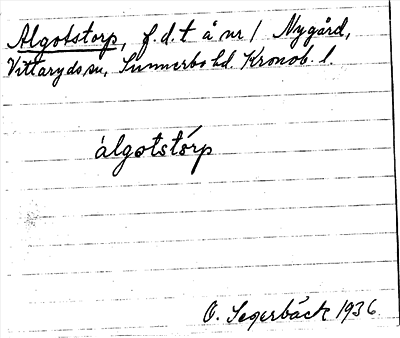 Algotstorp, f.d.t å nr 1 Nygård,
Vittaryds sn, Sunnerbo hd. Kronob. l.
álgotstórp
O. Segerbäck 1936